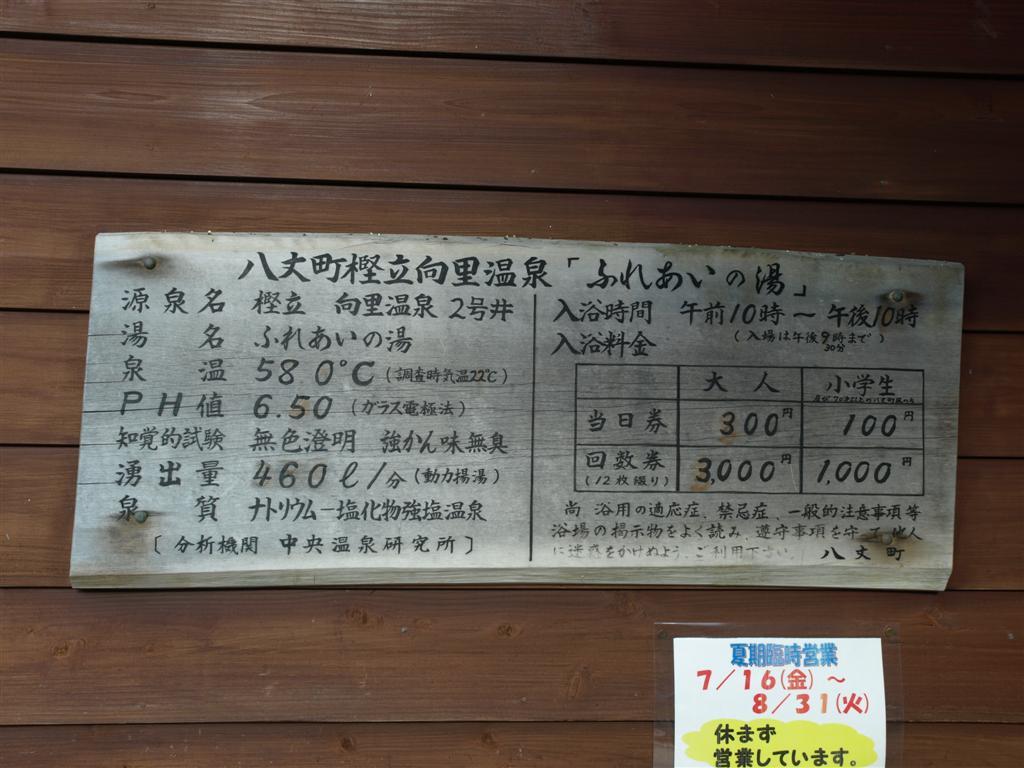 八丈町樫立向里温泉「ふれあいの湯」
源泉名 樫立 向里温泉 2号井
湯名 ふれあいの湯
泉温 58.0℃(調査時気温22℃)
PH値 6.50(ガラス電極法)
知覚的試験 無色澄明 強かん味無臭
湧出量 460ℓ/分(動力揚湯)
泉質 ナトリウム-塩化物強塩温泉
〔分析機関 中央温泉研究所〕
入浴時間 午前10時〜午後10時
(入場は午後9時30分まで)
入浴料金
大人 小学生
当日券 300円 100円
回数券(12枚綴り) 3,000円 1,000円
尚、浴用の適応症、禁忌症、一般的注意事項等
浴場の掲示物をよく読み、遵守事項を守 他人
に迷惑をかけぬよう、ご利用下さい。 八丈町
夏期臨時営業
7/16(金)〜
8/31(火)
休まず
営業しています。